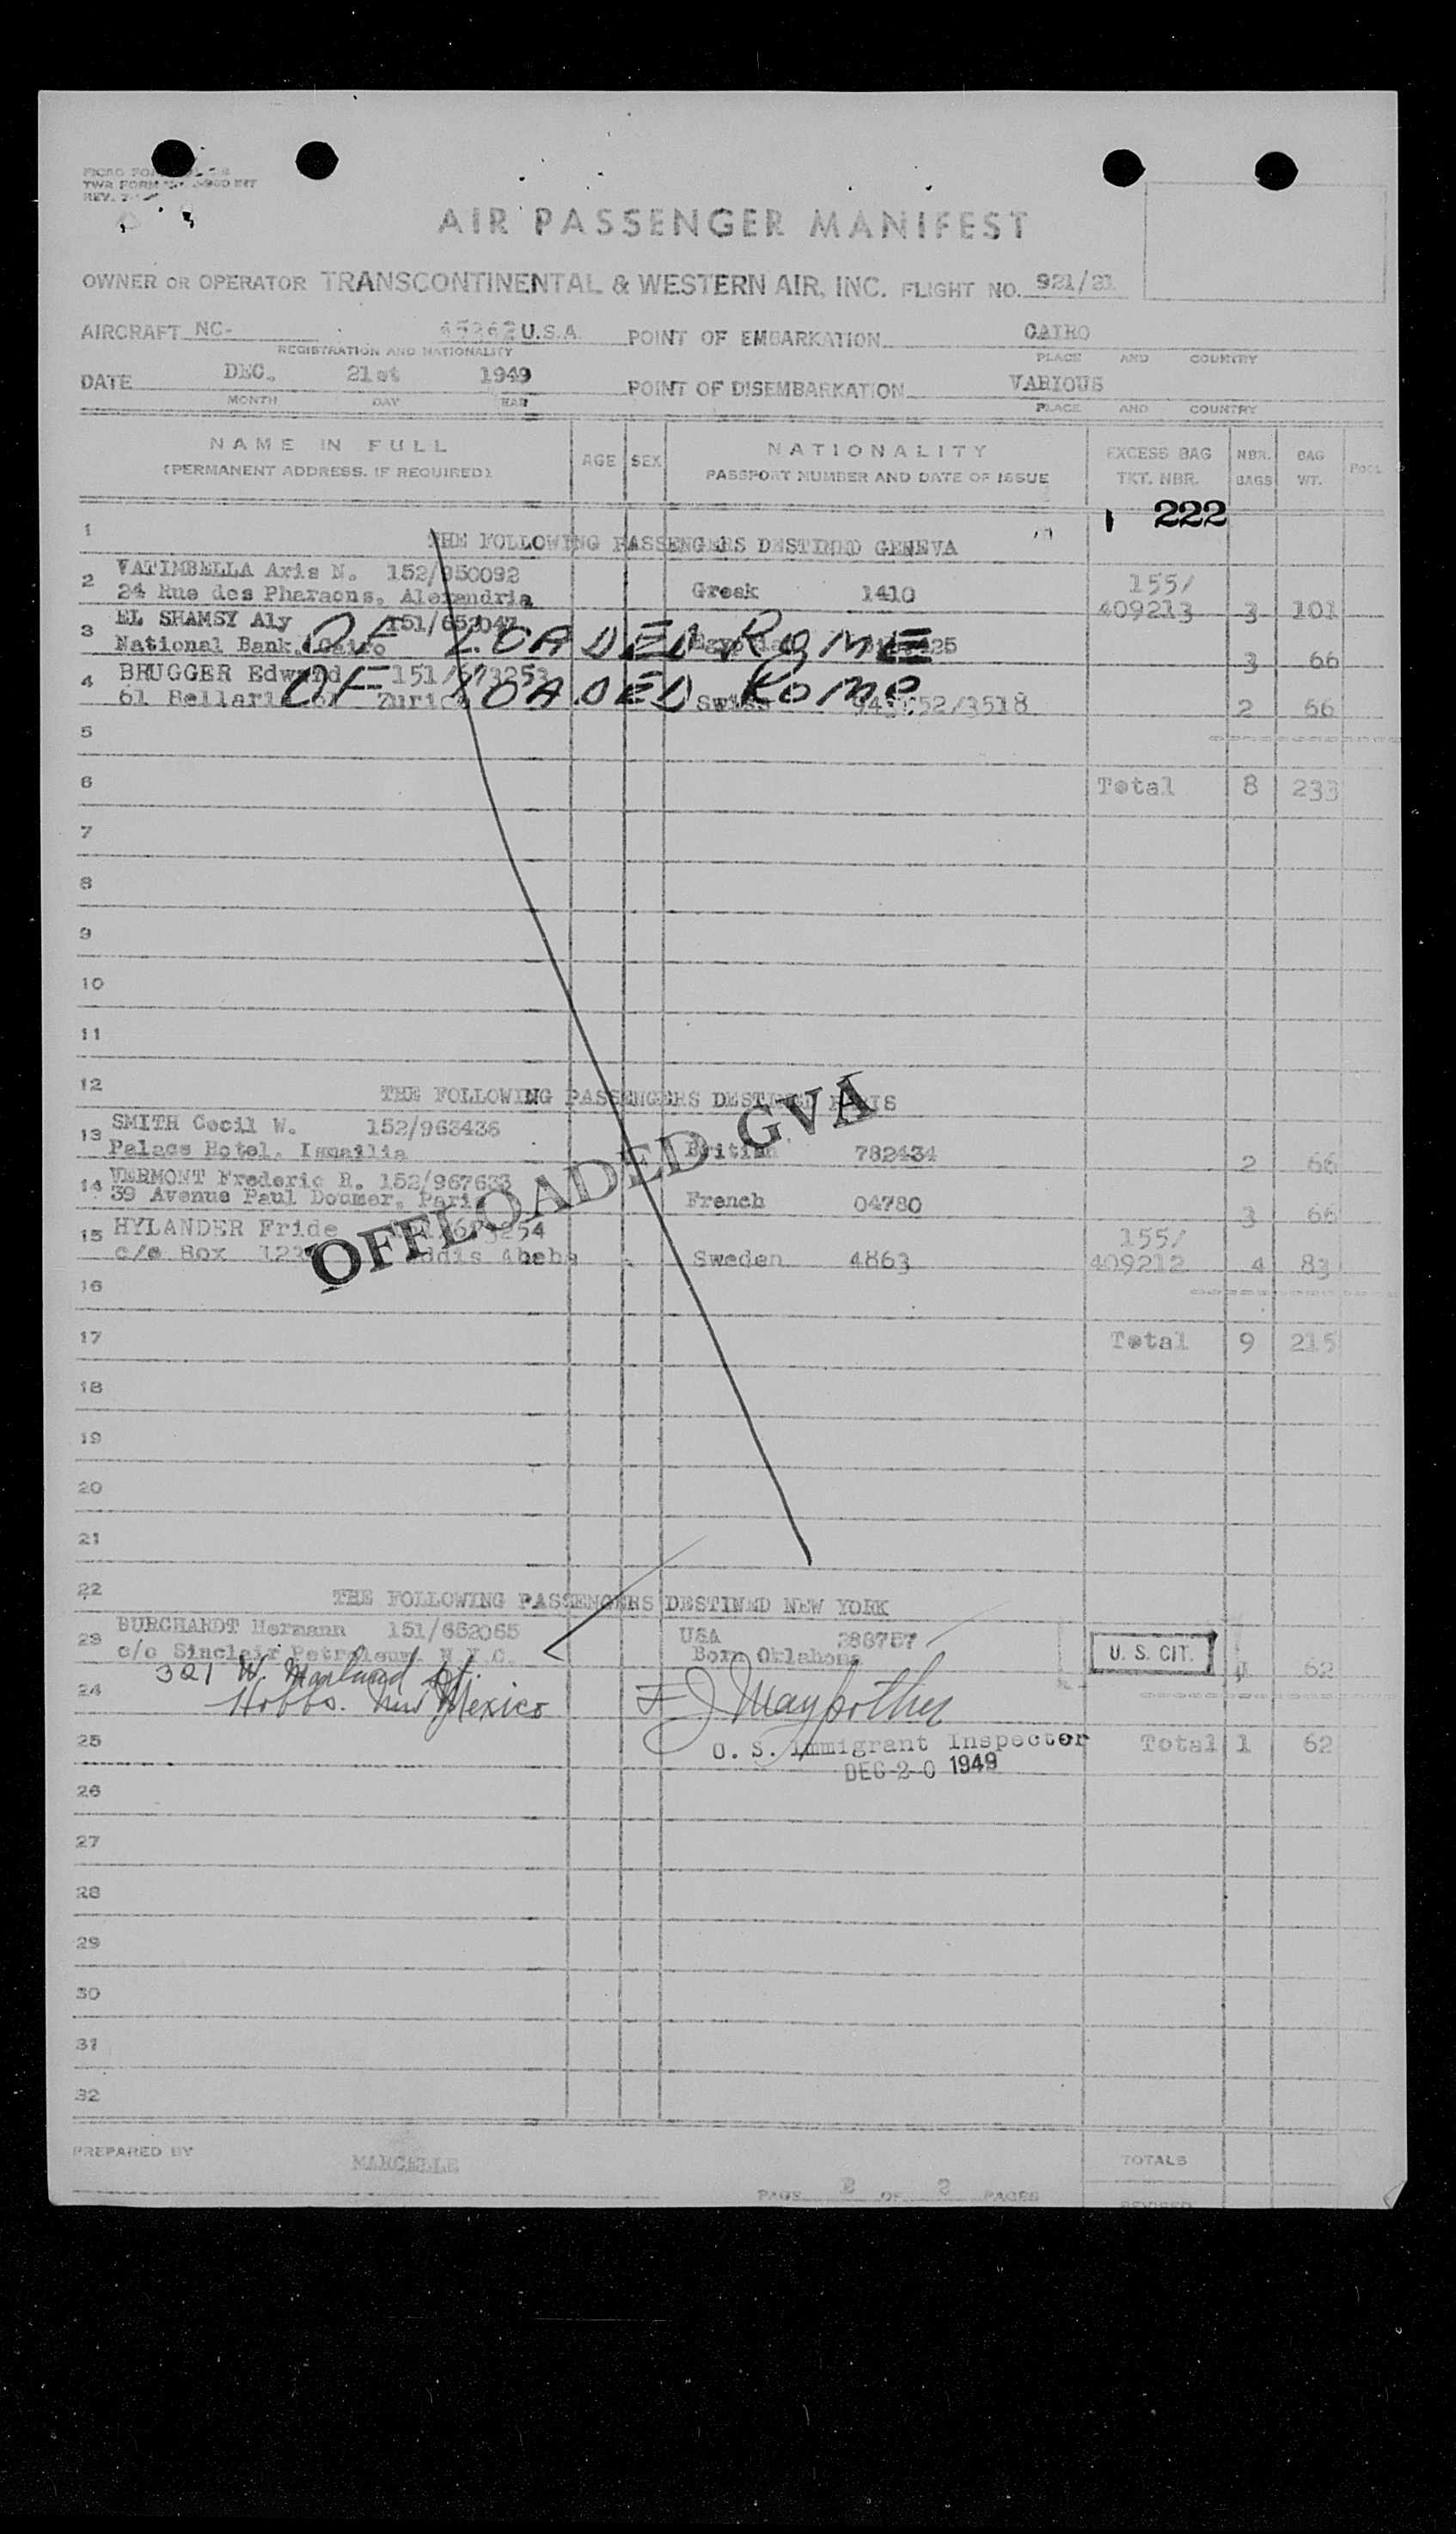 TWA FORM
REV.
AIR PASSENGER MANIFEST
OWNER OR OPERATOR TRANSCONTINENTAL & WESTERN AIR, INC. FLIGHT NO. 921/21
AIRCRAFT NC- 45342 U.S.A. POINT OF EMBARKATION CAIRO
REGISTRATION AND NATIONALITY PLACE AND COUNTRY
DATE DEC. 21st 1949 POINT OF DISEMBARKATION VARIOUS
MONTH DAY YEAR PLACE AND COUNTRY
NAME IN FULL AGE SEX NATIONALITY EXCESS BAG NBR. BAG POOL
(PERMANENT ADDRESS, IF REQUIRED) PASSPORT NUMBER AND DATE OF ISSUE TKT. NBR. BAGS WT.
222
1 THE FOLLOWING PASSENGERS DESTINED GENEVA
2 VATIMBELLA Aris N. 152/950092 155/
24 Rue des Pharaons, Alexandria Greek 1410 409213 3 101
3 EL SHAMSY Aly 151/652047
National Bank, Cairo 3 66
OF LOADED ROME
4 BRUGGER Edward 151/673253
61 Zurich Swiss 3518 2 66
OF LOADED Rome
5
6 Total 8 233
7
8
9
10
11
12 THE FOLLOWING PASSENGERS DESTINED PARIS
13 SMITH Cecil W. 152/963436
Palace Hotel, Ismailia British 782434 2 66
14 VERMONT Frederic R. 152/967633
39 Avenue Paul Doumer, Paris French 04780 3 66
15 HYLANDER Fride 155/
c/o Box Addis Abeba Sweden 4863 409212 4 83
OFFLOADED GVA
16
17 Total 9 215
18
19
20
21
22 THE FOLLOWING PASSENGERS DESTINED NEW YORK
23 BURCHARDT Hermann 151/652065 USA 288757
c/o Sinclair Petroleum N.Y.C. Born Oklahoma U. S. CIT. 1 62
321 W. Marland St.
24 Hobbs. New Mexico
25 U. S. Immigrant Inspector Total 1 62
DEC 20 1949
26
27
28
29
30
31
32
PREPARED BY MARCELLE TOTALS
PAGE 2 OF 2 PAGES REVISED